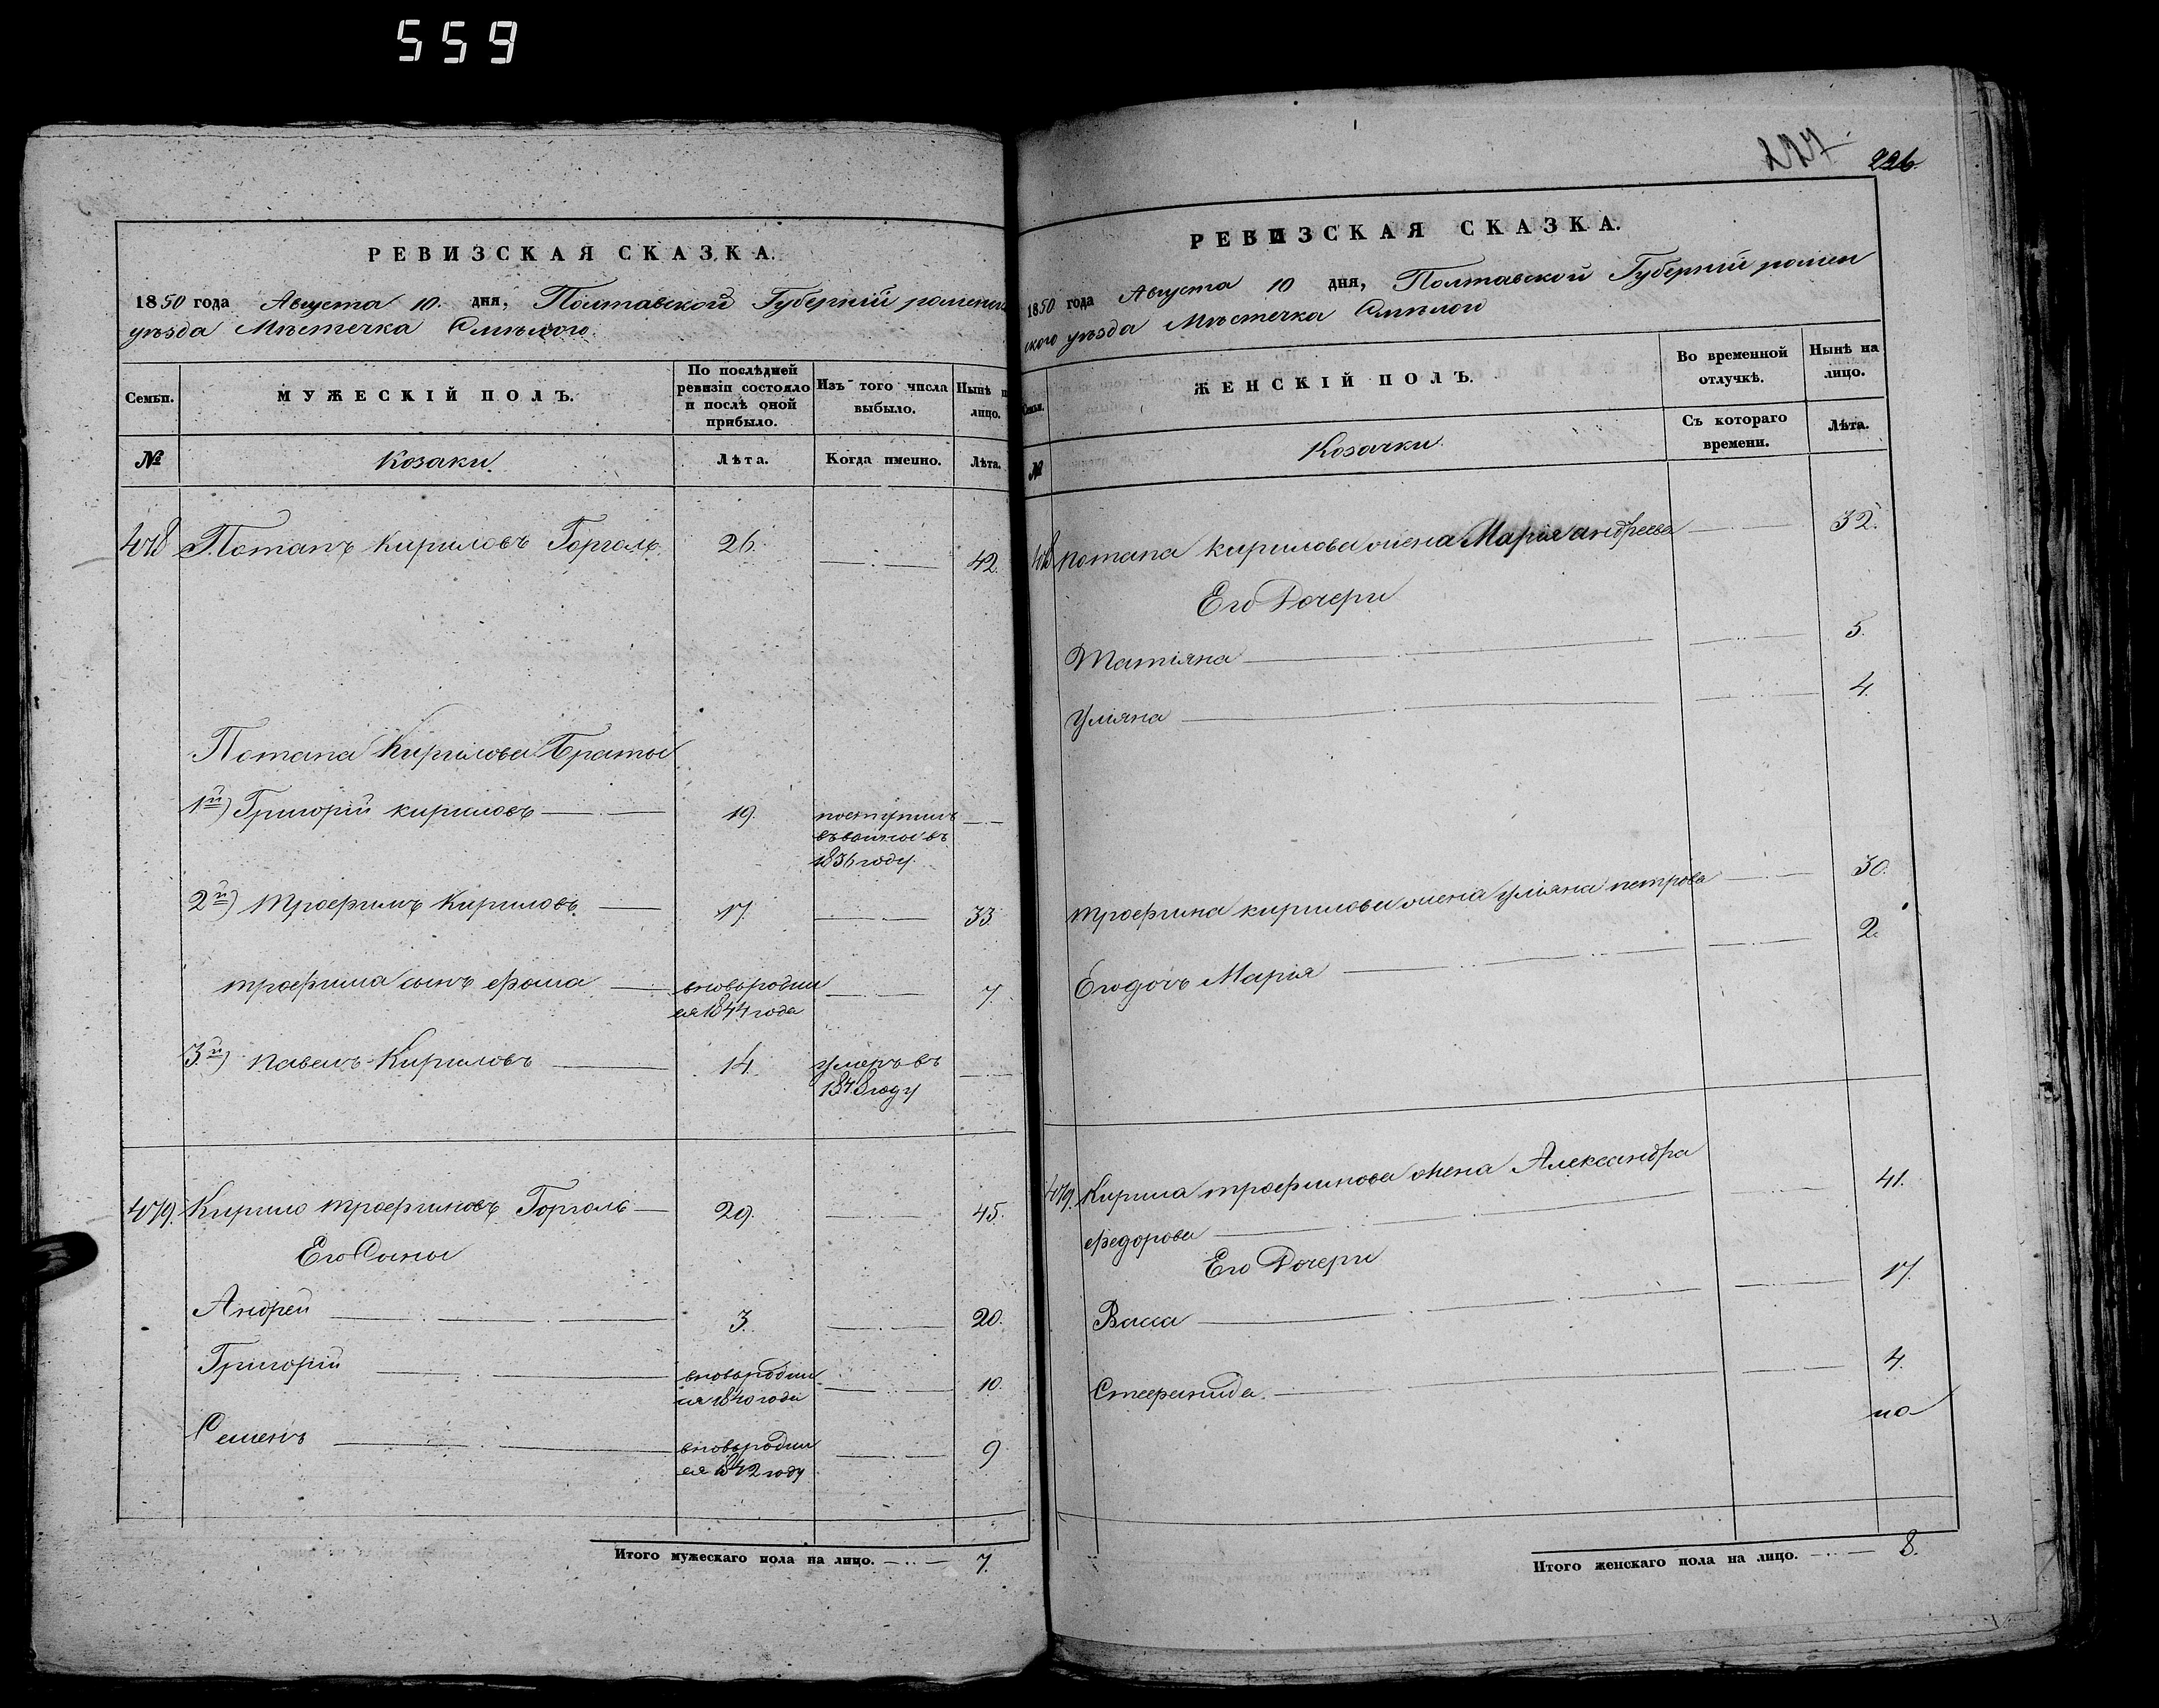 559
РЕВИЗСКАЯ СКАЗКА.
1850 года Августа 10. дня, Полтавской Губерніи роменс
уѣзда Мѣстечка Смѣлого.
Семьи.
МУЖЕСКІЙ ПОЛЪ.
По послѣдней
ревизіи состояло
и послѣ оной
прибыло.
Изъ того числа
выбыло.
Нынѣ н
лицо.
№
Козаки
Лѣта.
Когда именно.
Лѣта.
478 Потапъ Кириловъ Горголь 26. 42.
Потапа Кирилова Браты
1й) Григорій Кириловъ 19. поступилъ
1836 году.
2й) Трофимъ Кириловъ 17. 33.
Трофима сынъ Фома вновьродил
ся 1844 года 7
3й) Павелъ Кириловъ 14. умеръ въ
1848 году
479. Кирило Трофимовъ Горголь 29. 45.
Его Сыны
Андрей 3. 20.
Григорій вновьродил
ся 1840 года 10.
Семенъ вновьродил
ся 1842 году 9
Итого мужескаго пола на лицо. 7.
227
226.
РЕВИЗСКАЯ СКАЗКА.
1850 года Августа 10 дня, Полтавской Губерніи ромен
ского уѣзда Мѣстечка Смѣлои
Семьи.
ЖЕНСКІЙ ПОЛЪ.
Во временной
отлучкѣ.
Нынѣ на
лицо.
№
Козачки
Съ котораго
времени.
Лѣта.
478 Потапа Кирилова жена Марія Андреева 32.
Его Дочери
Татіяна 5.
Уліяна 4.
Трофима Кирилова жена Уліяна Петрова 30.
Его дочь Марія 2.
479. Кирила Трофимова жена Александра
Федорова 41.
Его Дочери
Васса 17.
Стефанида 4.
Итого женскаго пола на лицо. 8.